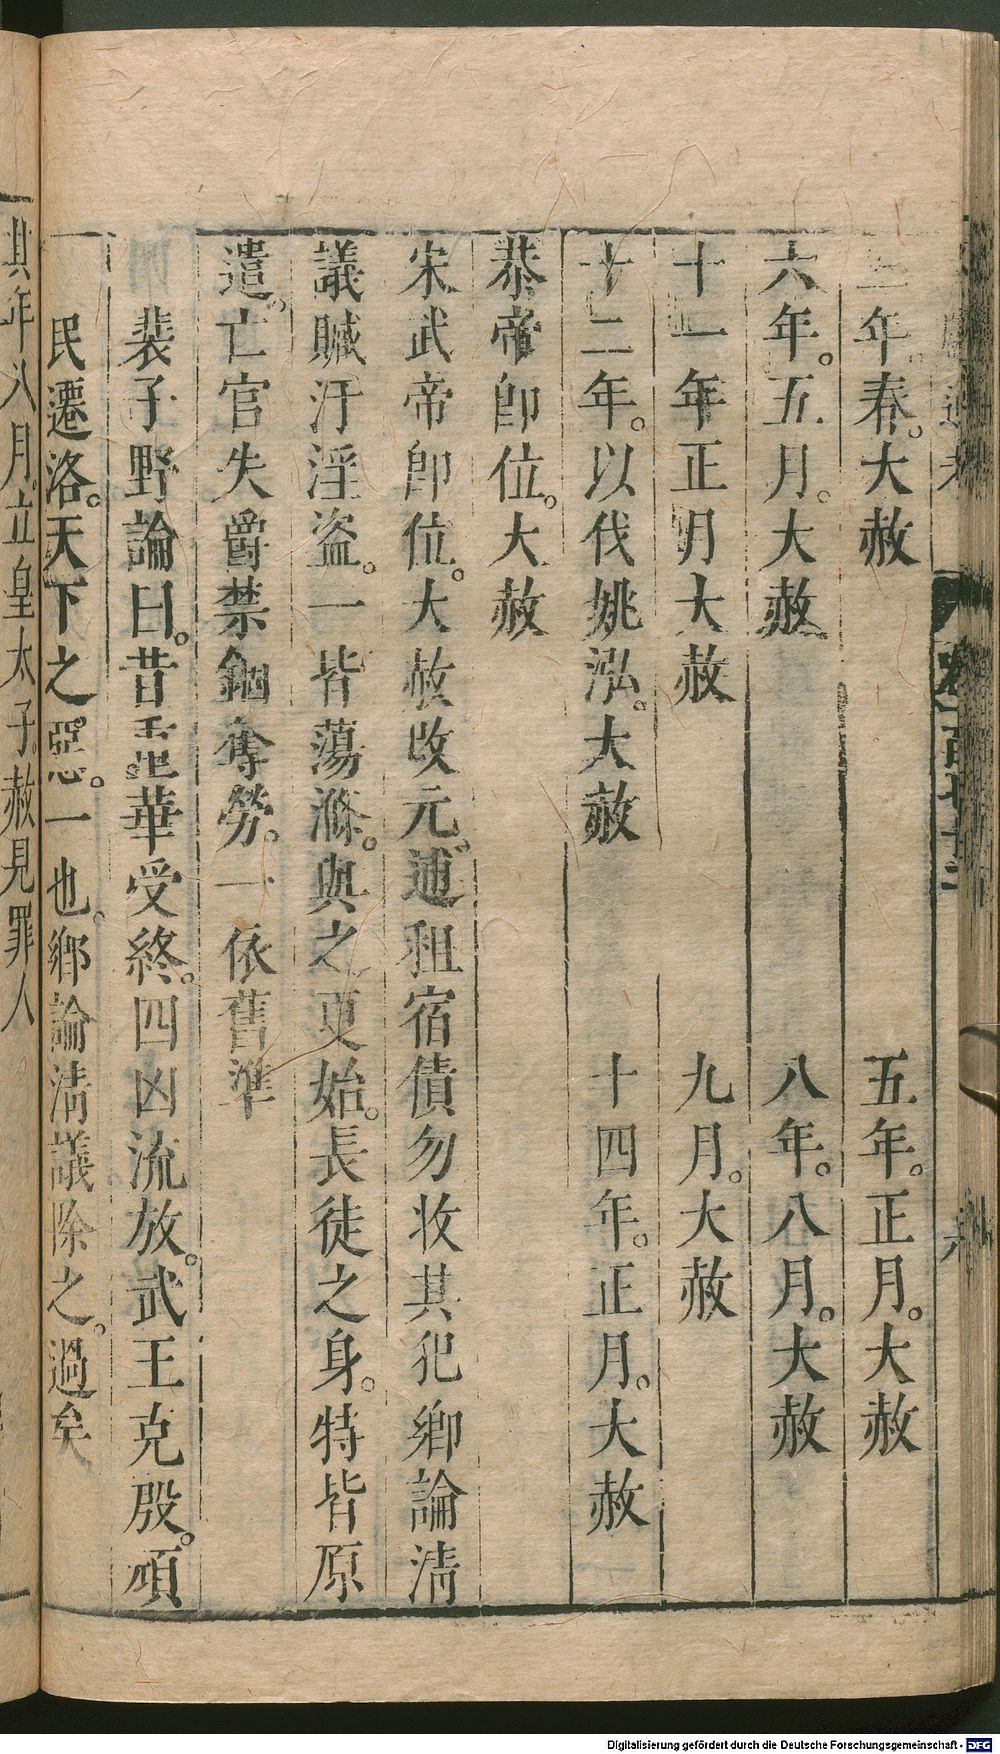 三年。春。大赦　五年。正月。大赦
六年。五月。大赦　八年。八月。大赦
十一年正月大赦　九月。大赦
十二年。以伐姚泓。大赦　十四年。正月。大赦
恭帝卽位。大赦
宋武帝卽位。大赦改元。逋租宿債勿收其犯鄉論淸
議贓汙淫盜。一皆蕩滌。與之更始。長徒之身。特皆原
遣。亡官失爵禁錮奪勞。一依舊準
裴子野論曰。昔重華受終。四凶流放。武王克殷。頑
民遷洛。天下之惡。一也。鄉論淸議除之。過矣
其年八月立皇太子赦見罪人
卷一百七十二
六
Digitalisierung gefördert durch die Deutsche Forschungsgemeinschaft - DFG